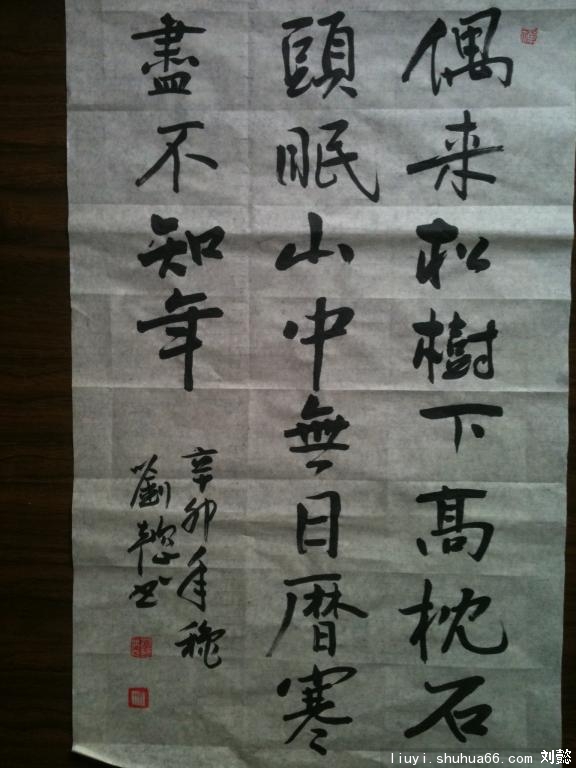 偶来松樹下高枕石
頭眠山中無日暦寒
盡不知年
辛卯年秋
劉懿书
liuyi.shuhua66.com 刘懿